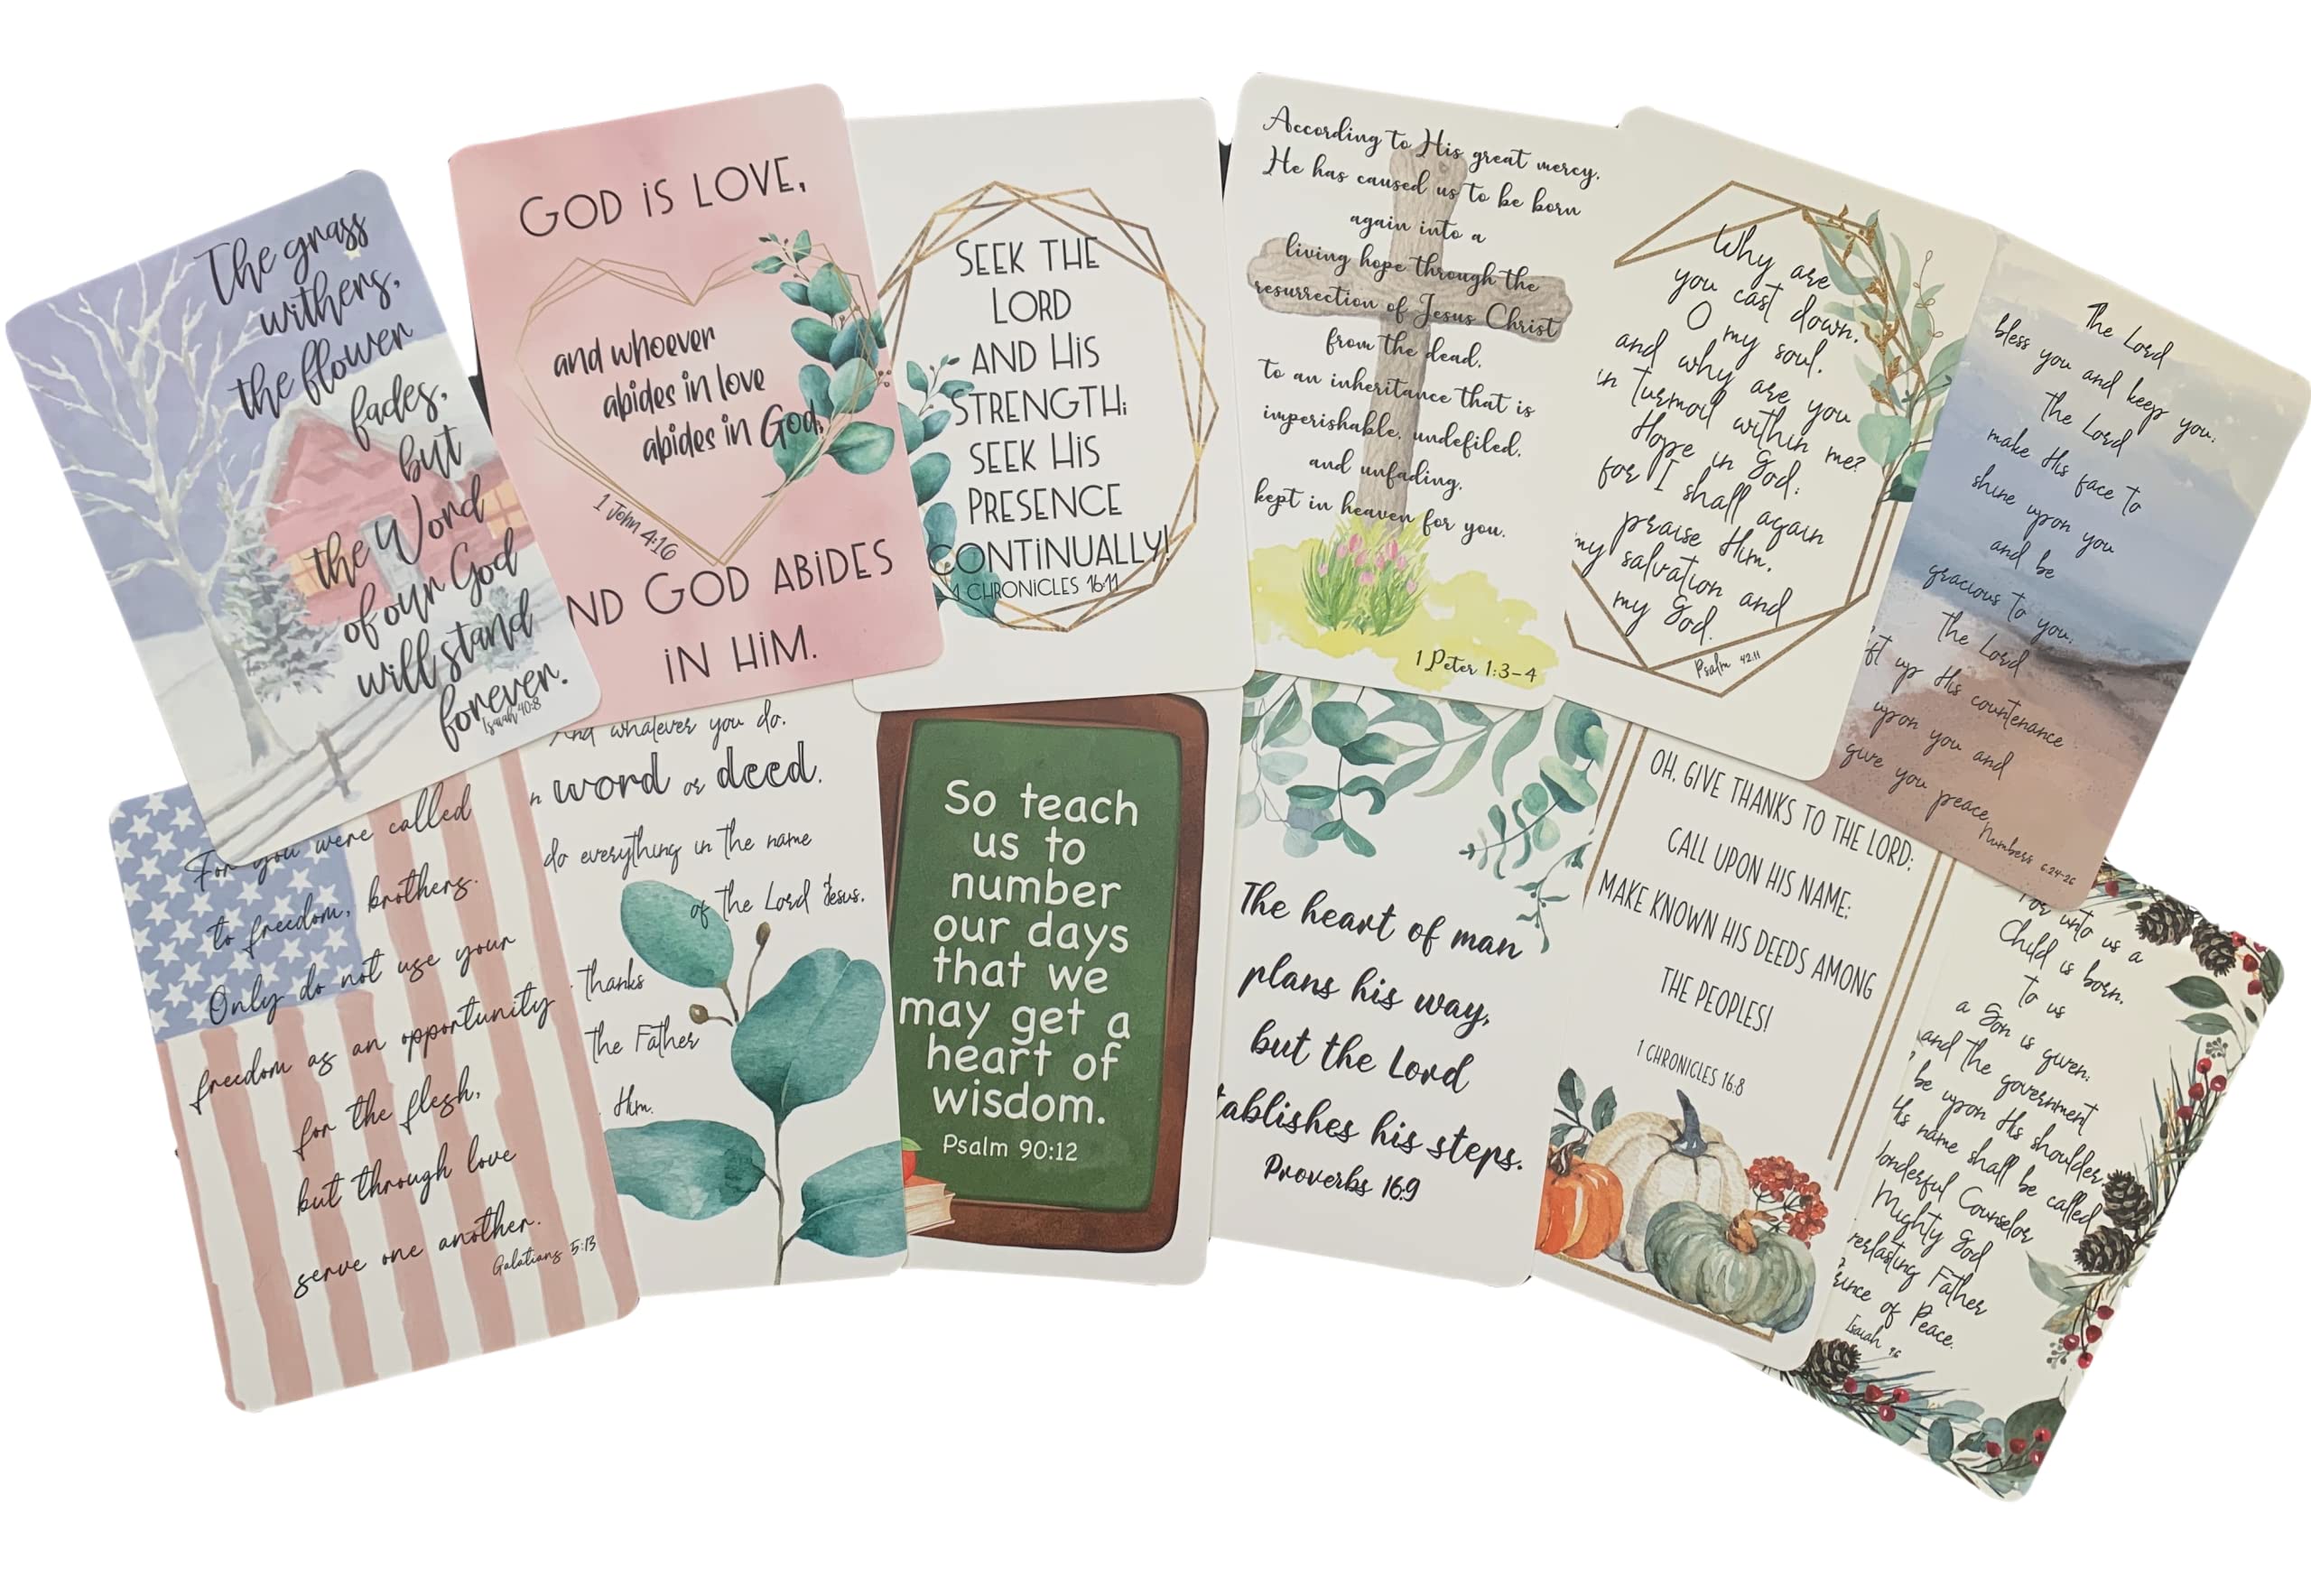 The grass
withers,
the flower
fades,
but
the Word
of our God
will stand
forever.
Isaiah 40:8
GOD iS LOVE,
and whoever
abides in love
abides in God,
1 John 4:16
ND GOD ABiDES
iN HiM.
SEEK THE
LORD
AND HiS
STRENGTH;
SEEK HiS
PRESENCE
CONTiNUALLY!
1 CHRONICLES 16:11
According to His great mercy,
He has caused us to be born
again into a
living hope through the
resurrection of Jesus Christ
from the dead,
to an inheritance that is
imperishable, undefiled,
and unfading,
kept in heaven for you.
1 Peter 1:3-4
Why are
you cast down,
O my soul,
and why are you
in turmoil within me?
Hope in God;
for I shall again
praise Him,
my salvation and
my God.
Psalm 42:11
The Lord
bless you and keep you;
the Lord
make His face to
shine upon you
and be
gracious to you;
the Lord
ft up His countenance
upon you and
give you peace.
Numbers 6:24-26
For you were called
to freedom, brothers.
Only do not use your
freedom as an opportunity
for the flesh,
but through love
serve one another.
Galatians 5:13
And whatever you do,
n word or deed,
do everything in the name
of the Lord Jesus,
thanks
the Father
Him.
So teach
us to
number
our days
that we
may get a
heart of
wisdom.
Psalm 90:12
The heart of man
plans his way,
but the Lord
tablishes his steps.
Proverbs 16:9
OH, GIVE THANKS TO THE LORD;
CALL UPON HIS NAME;
MAKE KNOWN HIS DEEDS AMONG
THE PEOPLES!
1 CHRONICLES 16:8
For unto us a
Child is born,
to us
a Son is given;
and the government
be upon His shoulder,
His name shall be called
onderful Counselor
Mighty God
verlasting Father
rince of Peace.
Isaiah 9:6